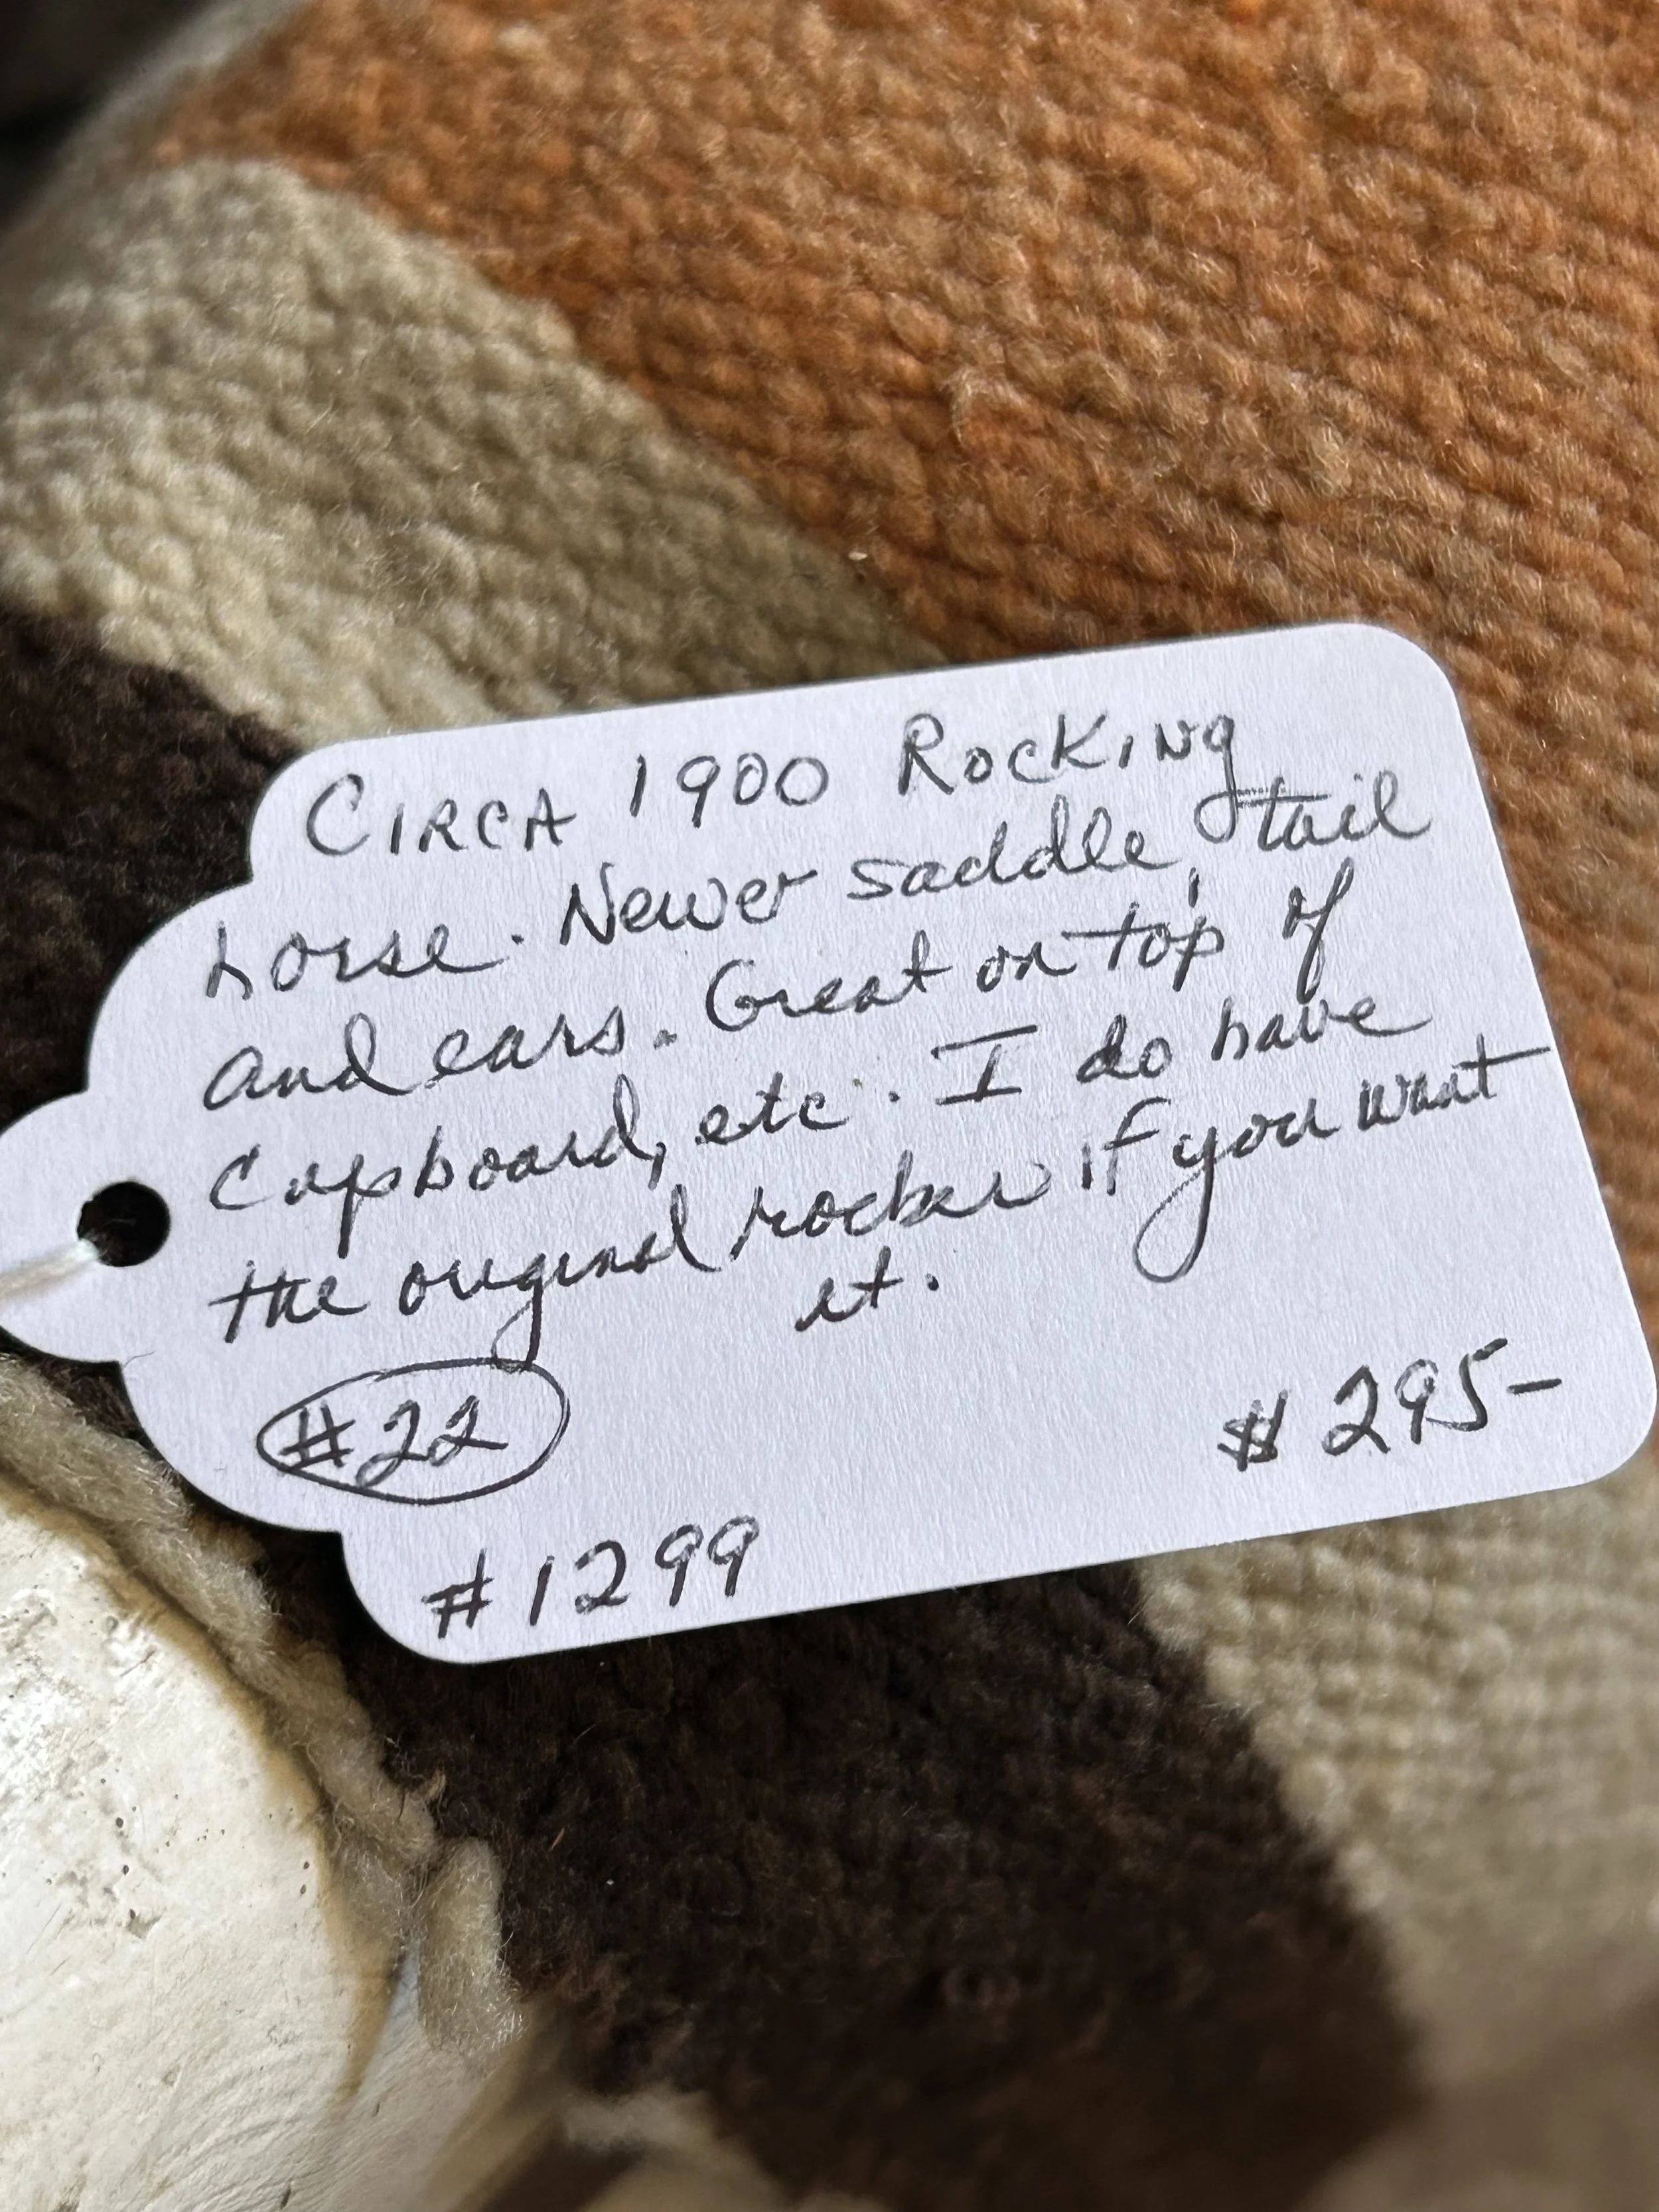 CIRCA 1900 ROCKING
horse. Newer saddle, tail
and ears. Great on top of
Cupboard, etc. I do have
the original rocker if you want
it.
#22
$295-
#1299